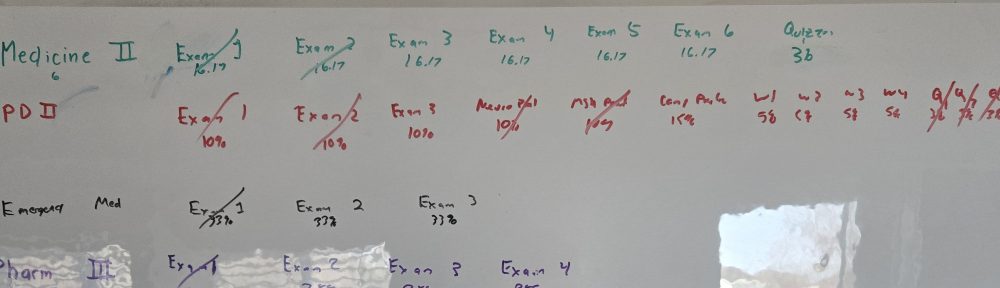 Medicine II Exam 1 Exam 2 Exam 3 Exam 4 Exam 5 Exam 6 Quizzes
6 16.17 16.17 16.17 16.17 16.17 16.17 3b
PD II Exam 1 Exam 2 Exam 3 W1 W2 W3 W4 Q1
10% 10% 10% 10% 10% 15% 5% 5% 5% 5%
Emergency Med Exam 1 Exam 2 Exam 3
33% 33% 33%
Pharm III Exam 1 Exam 2 Exam 3 Exam 4